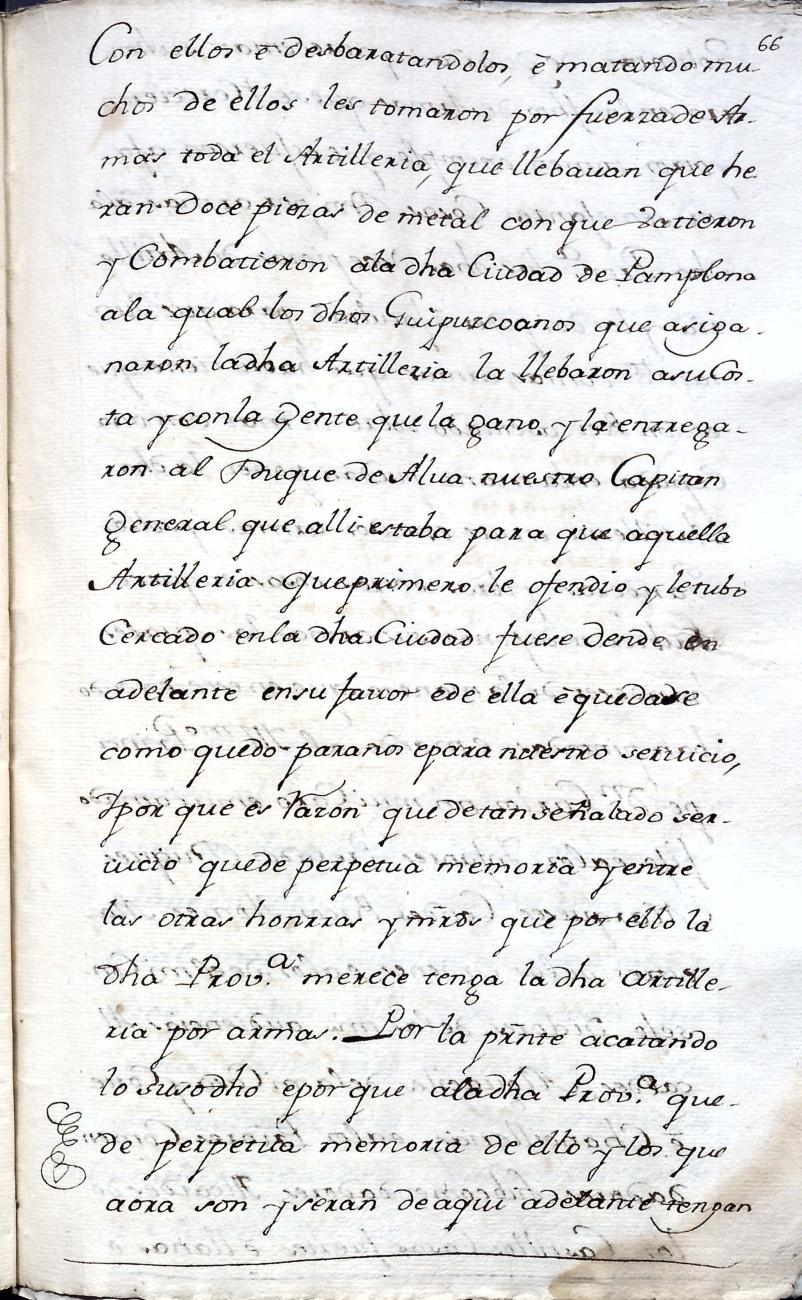 66
Con ellos e desbaratandolos, ē matando mu-
chos de ellos les tomaron por fuerza de Ar-
mas toda el Artilleria, que llebauan que he
ran Doce piezas de metal con que Vatieron
y Combatieron ala dha Ciudad de Pamplona
ala qual los dhos Guipurcoanos que asiga-
naron la dha Artilleria la llebaron asu Cos-
ta y con la Gente que la gano, y la entrega-
ron al Duque de Alua nuestro Capitan
General que alli estaba para que aquella
Artilleria que primero le ofendio y le tubo
Cercado en la dha Ciudad fuese dende en
adelante en su fauor e de ella ē quedase
como quedo para nos e para nuestro seruicio,
Ypor que es Razon que de tan señalado ser-
uicio quede perpetua memoria y entre
las otras honrras y mrds que por ello la
dha Prov.a merece tenga la dha artille-
ria por armas. Por la prnte acatando
lo susodho e por que ala dha Prov.a que-
de perpetua memoria de ello y los que
aora son y seran de aqui adelante tengan